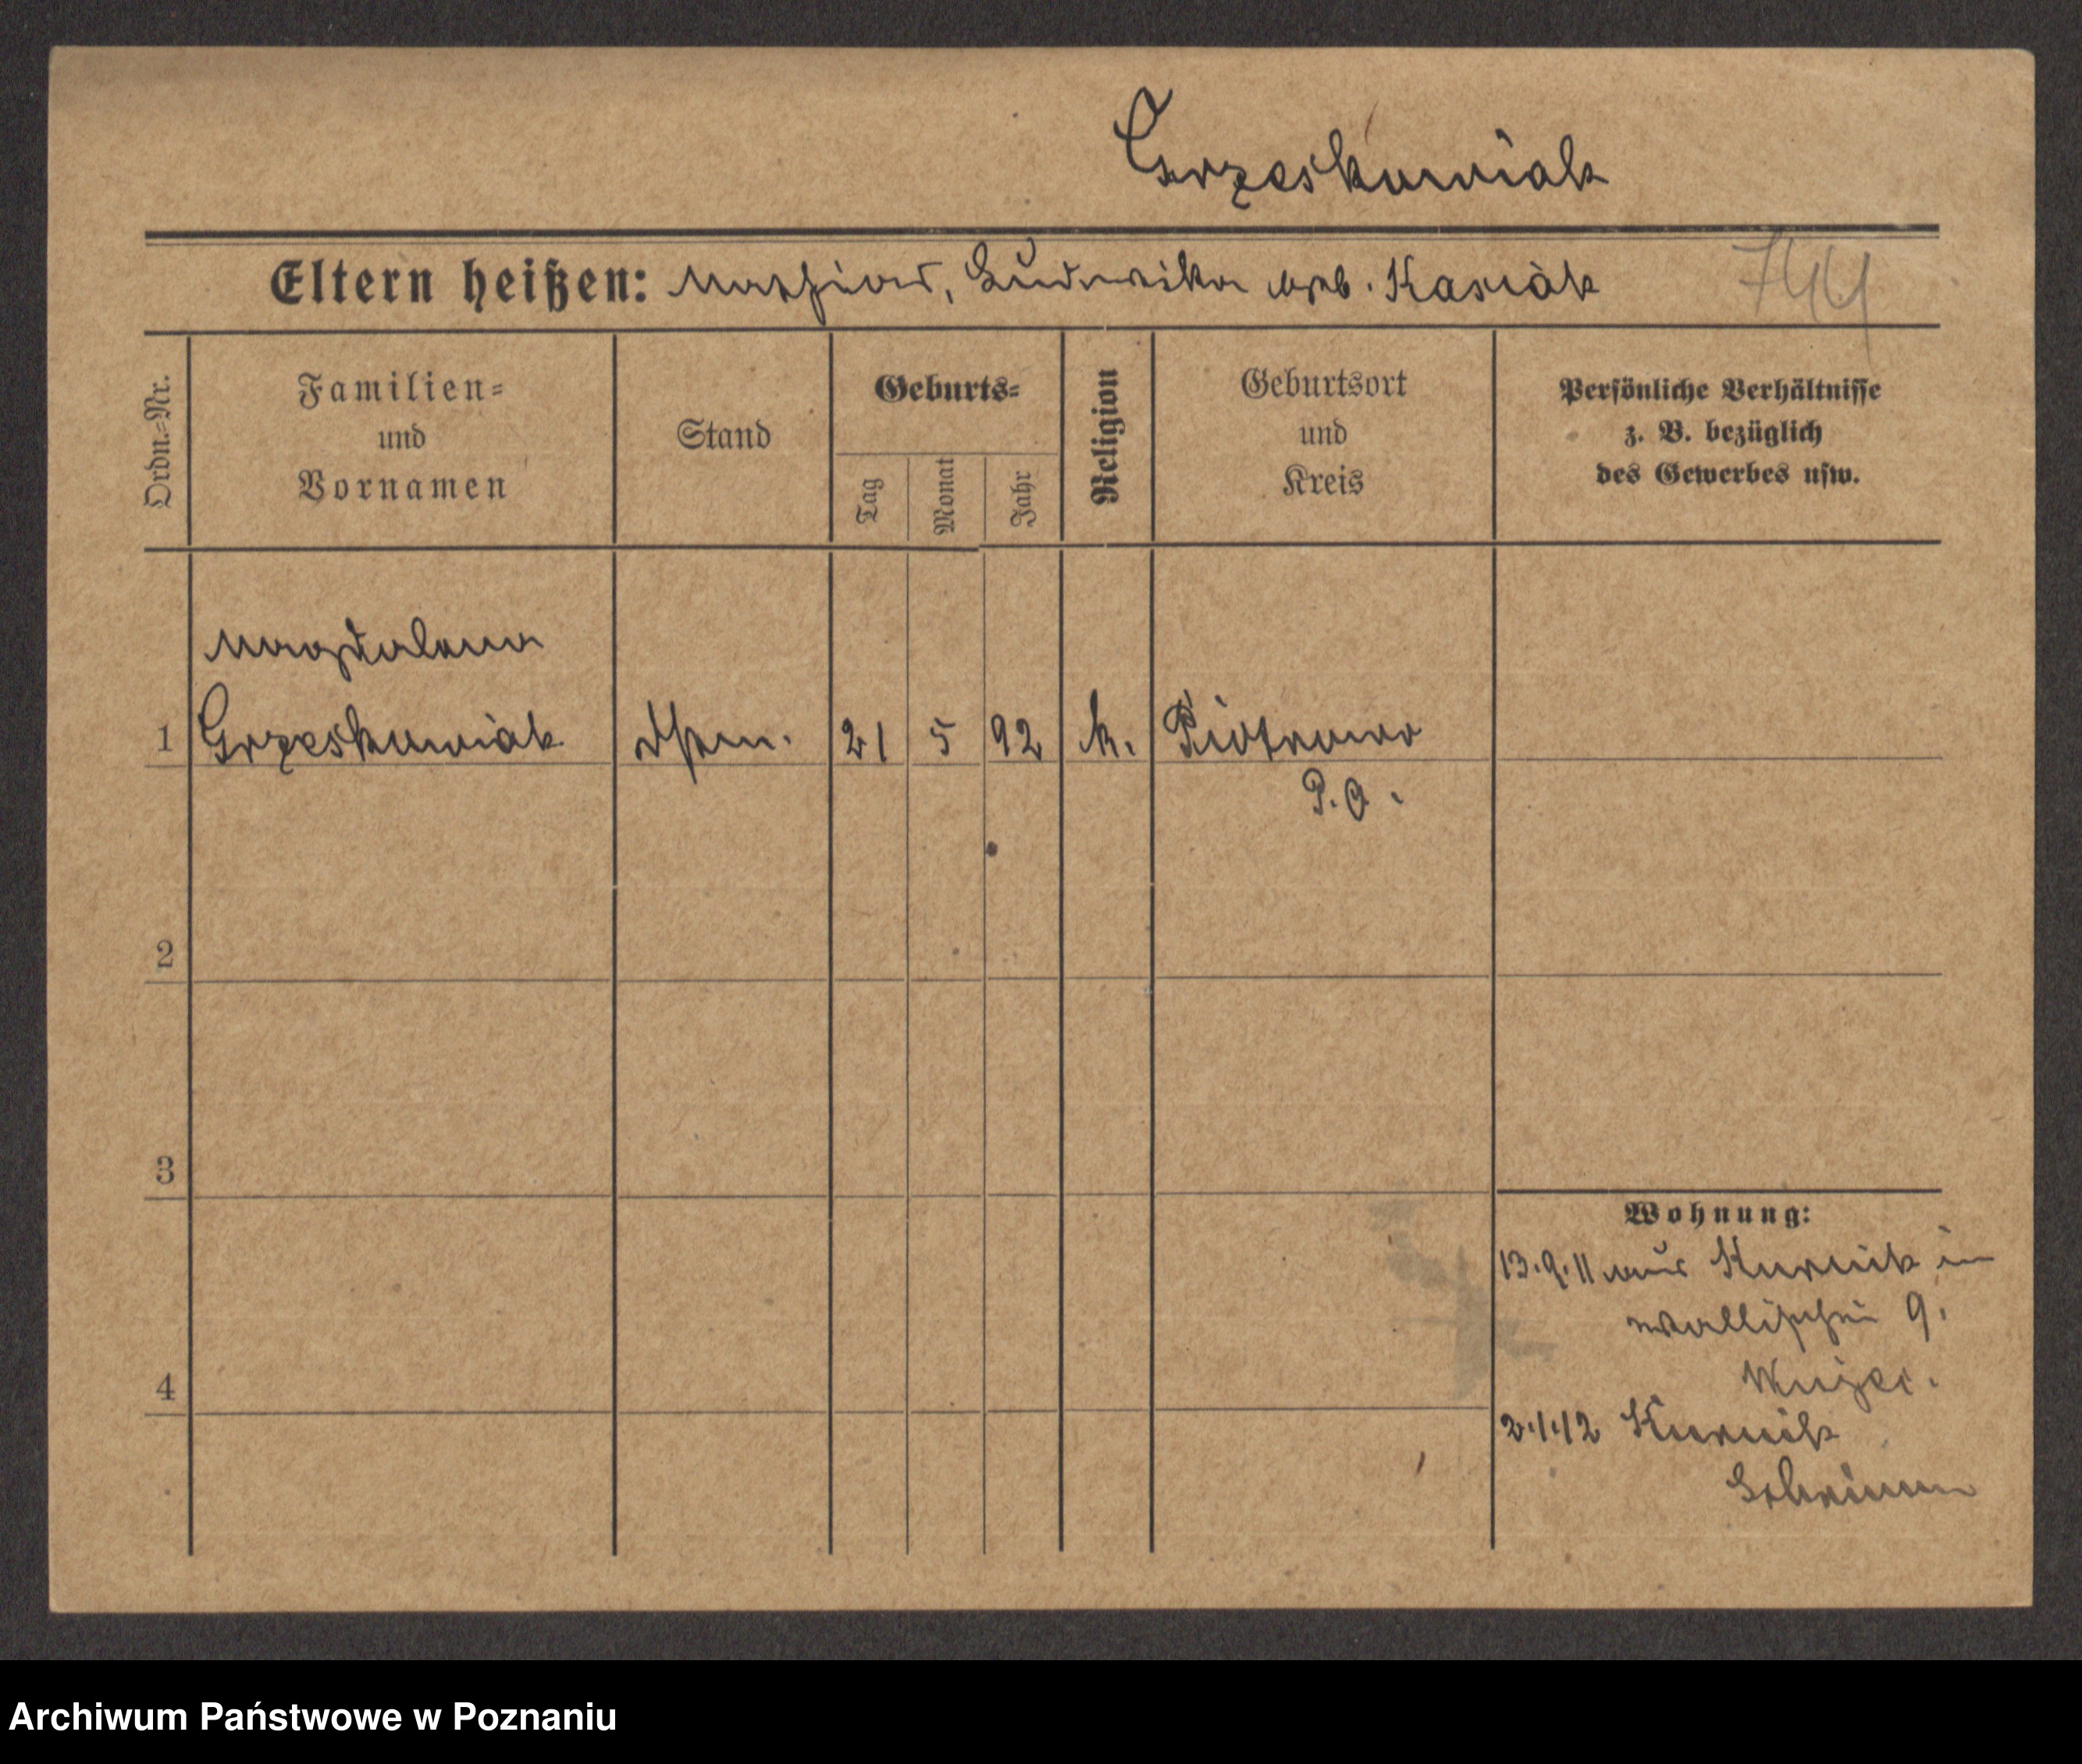 Grzeskowiak
Eltern heißen: Mathias, Ludwika geb. Kasiak
744
Ordn.-Nr.
Familien-
und
Vornamen
Stand
Geburts-
Tag
Monat
Jahr
Religion
Geburtsort
und
Kreis
Persönliche Verhältnisse
z. B. bezüglich
des Gewerbes usw.
Magdalena
1 Grzeskowiak 21 5 92 k. Piotrowo
P. O.
2
3
4
Wohnung:
13.9.11 aus Kurnik in
Wallischei 9.
2.1.12 Kurnik
Schrimm
Archiwum Państwowe w Poznaniu